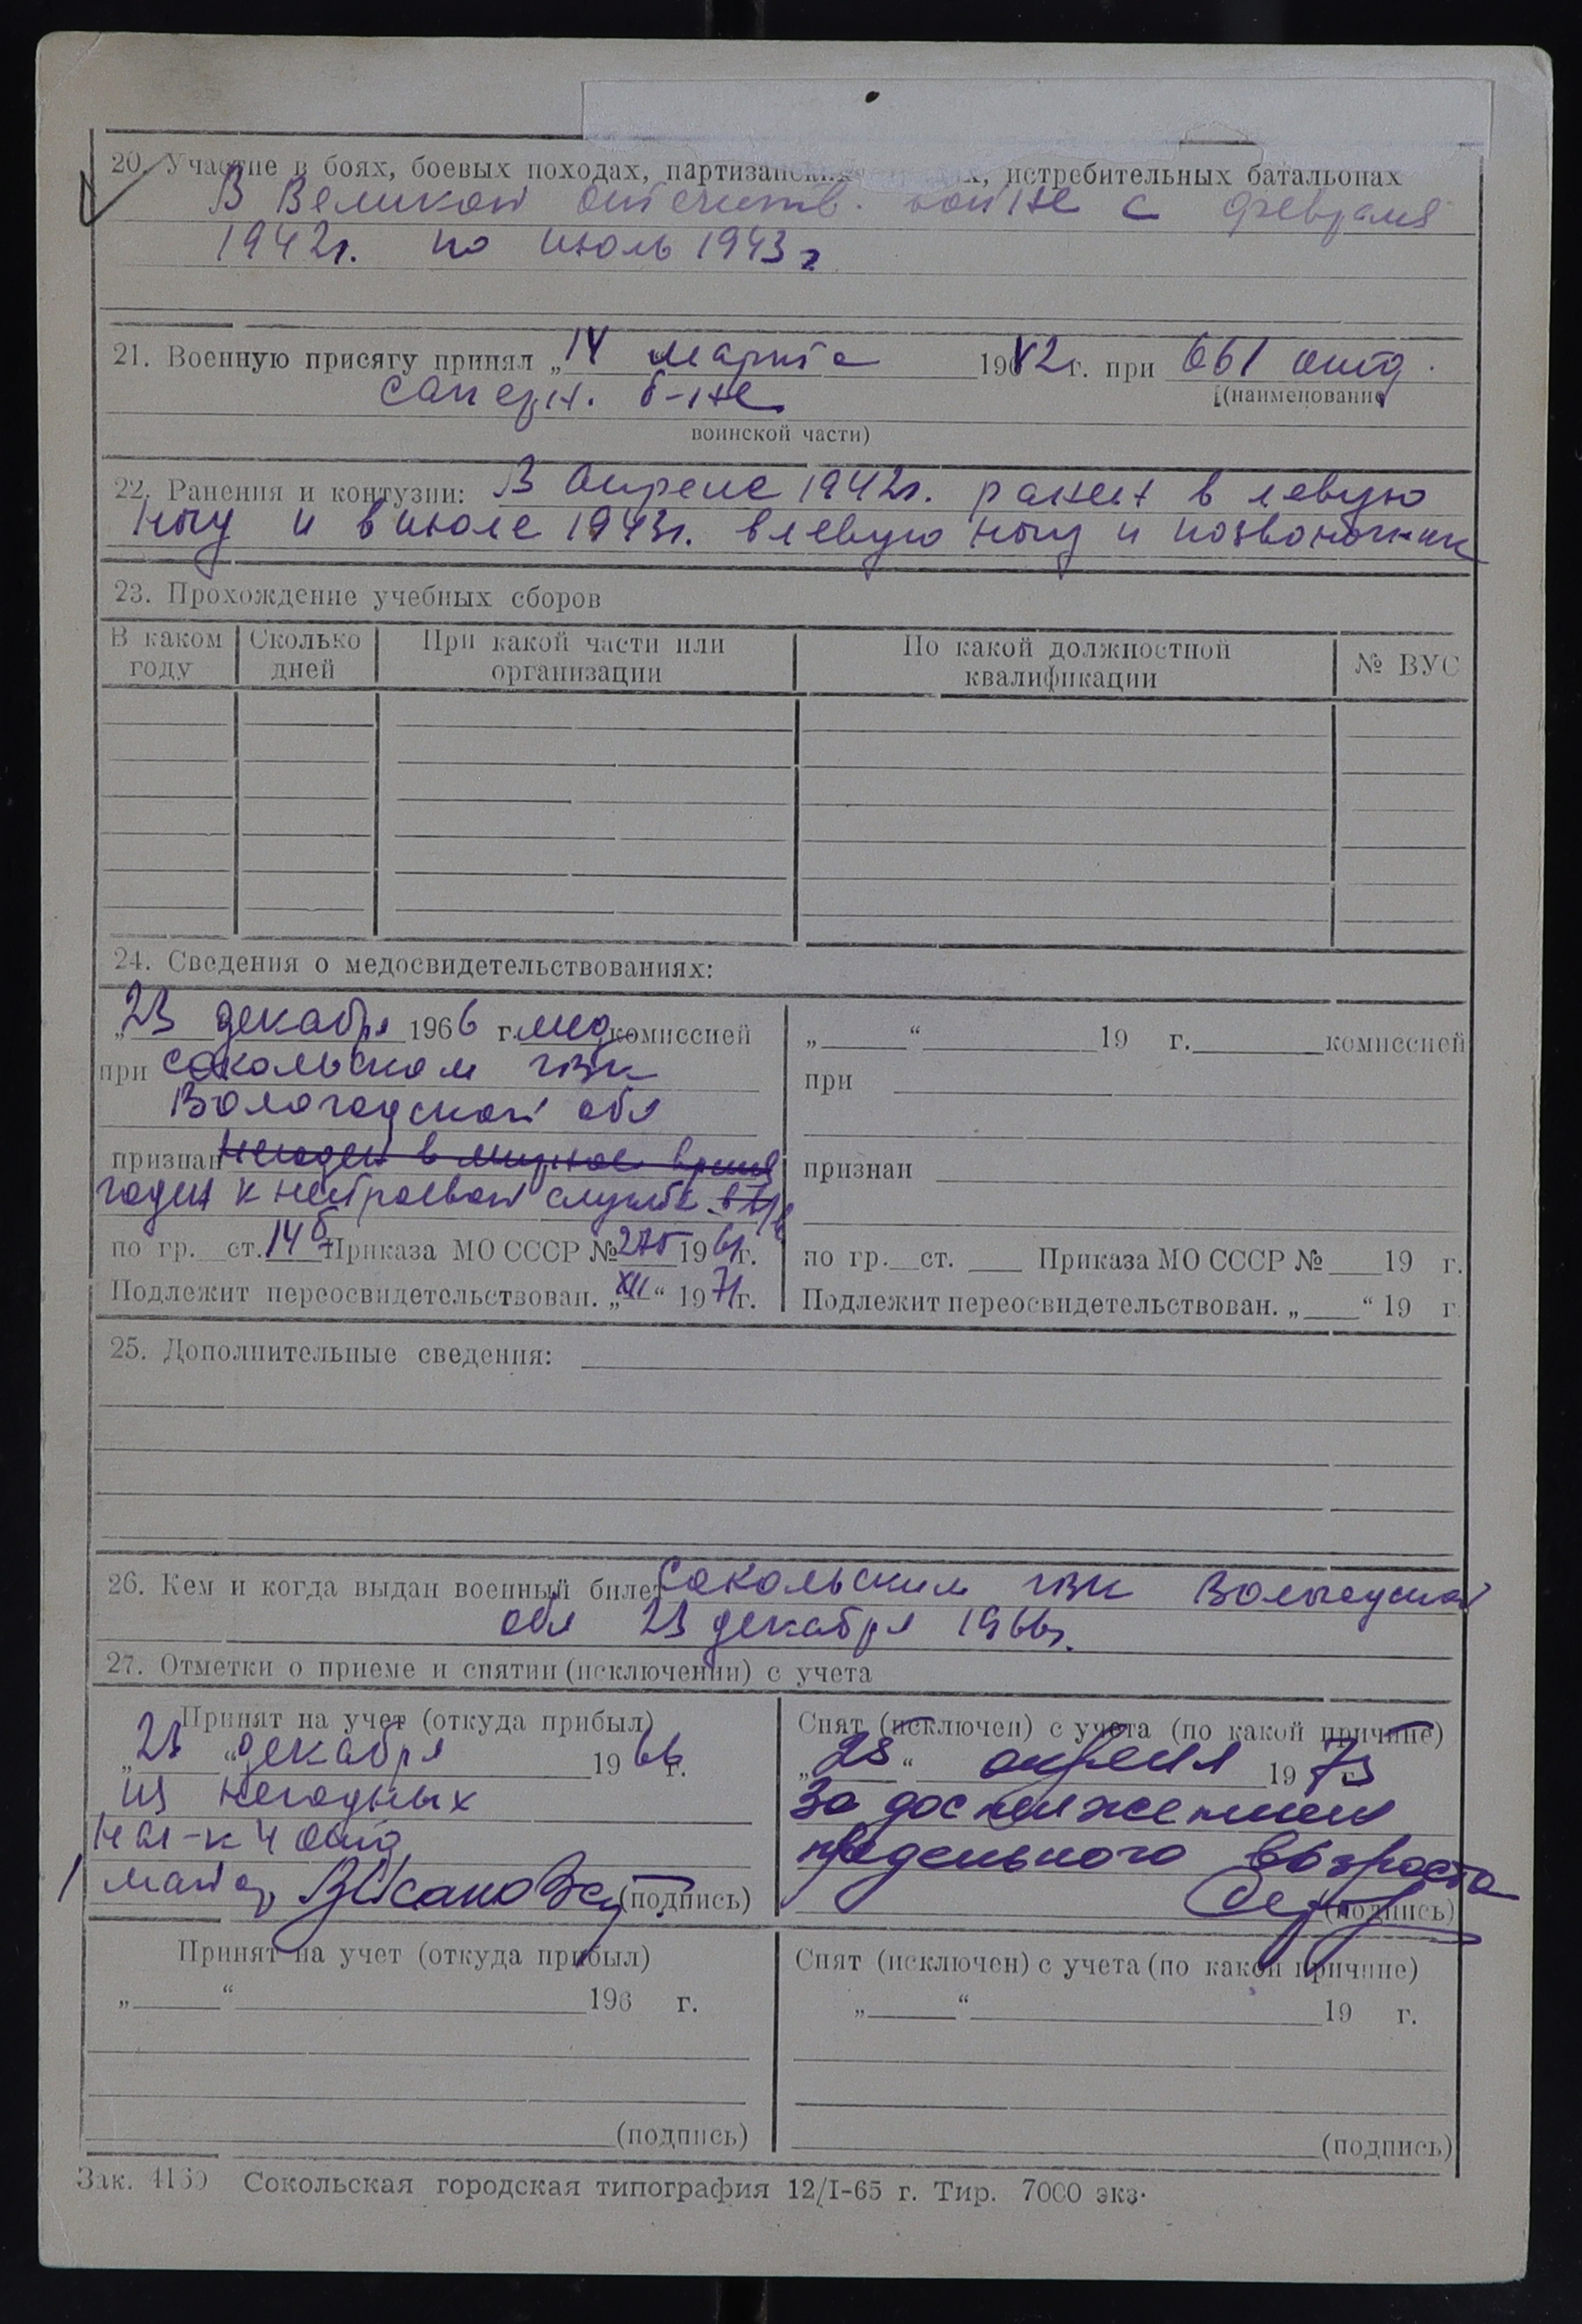 20. Участие в боях, боевых походах, партизанских х, истребительных батальонах
В Великой отечеств. войне с февраля
1942г. по июль 1943г
21. Военную присягу принял „14 марта 1942г. при 661 отд.
саперн. б-не
(наименование
воинской части)
22. Ранения и контузии: В апреле 1942г. ранен в левую
ногу и в июле 1943г. в левую ногу и позвоночник
23. Прохождение учебных сборов
В каком году | Сколько дней | При какой части или организации | По какой должностной квалификации | № ВУС
24. Сведения о медосвидетельствованиях:
„23 декабря 1966 г. мед комиссией
при Сокольском ГВК
Вологодской обл
признан негоден в мирное время
годен к нестроевой службе в
по гр. ст. 14б Приказа МО СССР № 275 196 г.
Подлежит переосвидетельствован. „XII“ 1971г.
„ “ 19 г. комиссией
при
признан
по гр. ст. Приказа МО СССР № 19 г.
Подлежит переосвидетельствован. „ “ 19 г
25. Дополнительные сведения:
26. Кем и когда выдан военный билет Сокольским ГВК Вологодской
обл 23 декабря 1966г.
27. Отметки о приеме и снятии (исключении) с учета
Принят на учет (откуда прибыл)
„23 “ декабря 1966 г.
из негодных
Нач-к 4 отд
майор (подпись)
Снят (исключен) с учета (по какой причине)
„28“ апреля 1973
За достижением
предельного возраста
(подпись)
Принят на учет (откуда прибыл)
„ “ 196 г.
(подпись)
Снят (исключен) с учета (по какой причине)
„ “ 19 г.
(подпись)
Зак. 4159 Сокольская городская типография 12/I-65 г. Тир. 7000 экз.